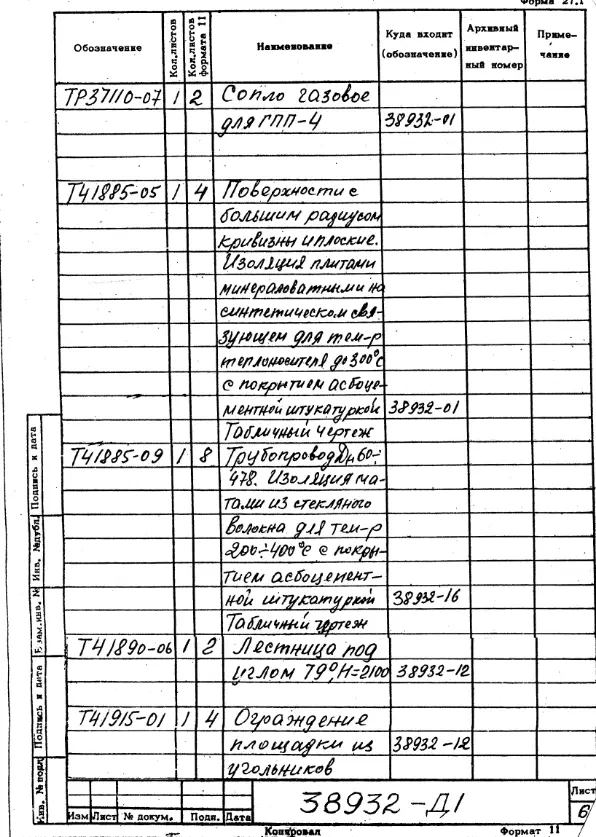 Форма 27.1
Обозначение Кол.листов Кол.листов формата 11 Наименование Куда входит (обозначение) Архивный инвентарный номер Примечание
ТР37110-07 1 2 Сопло газовое
для ГПП-4 38932-01
Т41885-05 1 4 Поверхности с
большим радиусом
кривизны и плоские.
Изоляция плитами
минераловатными на
синтетическом свя-
зующем для тем-р
теплоносителя до 300°с
с покрытием асбоце-
ментной штукатуркой 38932-01
Табличный чертеж
Т41885-09 1 8 Трубопровод Дн 60÷
478. Изоляция ма-
тами из стекляного
волокна для тем-р
200÷400°с с покры-
тием асбоцемент-
ной штукатуркой 38932-16
Табличный чертеж
Т41890-06 1 2 Лестница под
углом 79°, Н=2100 38932-12
Т41915-01 1 4 Ограждение
площадки из 38932-12
угольников
Подпись и дата
Инв. №дубл.
Взам.инв. №
Подпись и дата
Инв. № подл.
Изм Лист № докум. Подп. Дата
38932-Д1
Лист
6
Копировал Формат 11